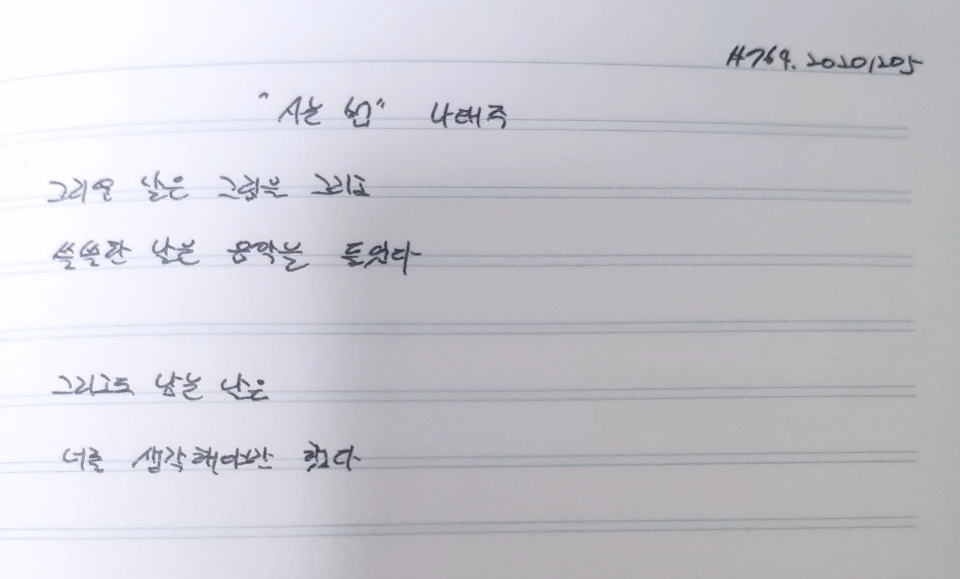 #764. 20201205
"사는 법" 나태주
그리운 날은 그림을 그리고
쓸쓸한 날은 음악을 들었다
그리고도 남는 날은
너를 생각해야만 했다